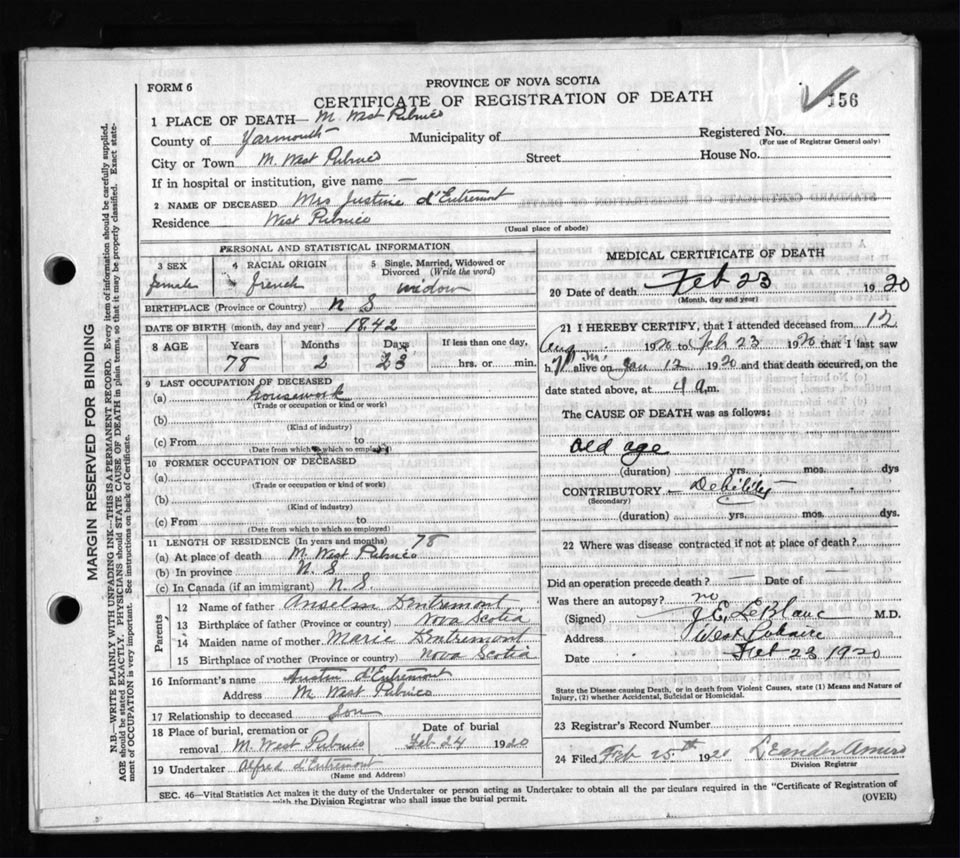 PROVINCE OF NOVA SCOTIA
FORM 6
CERTIFICATE OF REGISTRATION OF DEATH
156
1 PLACE OF DEATH— M. West Pubnico
County of Yarmouth Municipality of Registered No.
(For use of Registrar General only)
City or Town M. West Pubnico Street House No.
If in hospital or institution, give name —
2 NAME OF DECEASED Mrs Justine d'Entremont
Residence West Pubnico
(Usual place of abode)
PERSONAL AND STATISTICAL INFORMATION
3 SEX 4 RACIAL ORIGIN 5 Single, Married, Widowed or
Divorced (Write the word)
female french widow
BIRTHPLACE (Province or Country) N S
DATE OF BIRTH (month, day and year) 1842
8 AGE Years Months Days If less than one day,
78 2 23 hrs. or min.
9 LAST OCCUPATION OF DECEASED
(a) housework
(Trade or occupation or kind or work)
(b)
(Kind of industry)
(c) From to
(Date from which to which so employed)
10 FORMER OCCUPATION OF DECEASED
(a)
(Trade or occupation or kind of work)
(b)
(Kind of industry)
(c) From to
(Date from which to which so employed)
11 LENGTH OF RESIDENCE (In years and months) 78
(a) At place of death M. West Pubnico
(b) In province N. S
(c) In Canada (if an immigrant) N. S.
Parents
12 Name of father Anselm Dentremont
13 Birthplace of father (Province or country) Nova Scotia
14 Maiden name of mother Marie Dentremont
15 Birthplace of mother (Province or country) Nova Scotia
16 Informant's name Austin d'Entremont
Address M. West Pubnico
17 Relationship to deceased Son
18 Place of burial, cremation or Date of burial
removal M. West Pubnico Feb 24 1920
19 Undertaker Alfred d'Entremont
(Name and Address)
MEDICAL CERTIFICATE OF DEATH
20 Date of death Feb 23 1920
(Month, day and year)
21 I HEREBY CERTIFY, that I attended deceased from 12
Aug 1920 to Feb 23 1920 that I last saw
h alive on Jan 12 1920 and that death occurred, on the
date stated above, at 4 a.m.
The CAUSE OF DEATH was as follows:
Old age
(duration) yrs. mos. dys
CONTRIBUTORY — Debility
(Secondary)
(duration) yrs. mos. dys.
22 Where was disease contracted if not at place of death?
Did an operation precede death? — Date of —
Was there an autopsy? no
(Signed) J. E. LeBlanc M.D.
Address West
Date Feb 23 1920
State the Disease causing Death, or in death from Violent Causes, state (1) Means and Nature of
Injury, (2) whether Accidental, Suicidal or Homicidal.
23 Registrar's Record Number
24 Filed Feb 25th 1920 Leander Amiro
Division Registrar
SEC. 46—Vital Statistics Act makes it the duty of the Undertaker or person acting as Undertaker to obtain all the particulars required in the "Certificate of Registration of
with the Division Registrar who shall issue the burial permit.
(OVER)
MARGIN RESERVED FOR BINDING
N.B.—WRITE PLAINLY WITH UNFADING INK—THIS IS A PERMANENT RECORD. Every item of information should be carefully supplied.
AGE should be stated EXACTLY. PHYSICIANS should STATE CAUSE OF DEATH in plain terms, so that it may be properly classified. Exact state-
ment of OCCUPATION is very important. See instructions on back of Certificate.